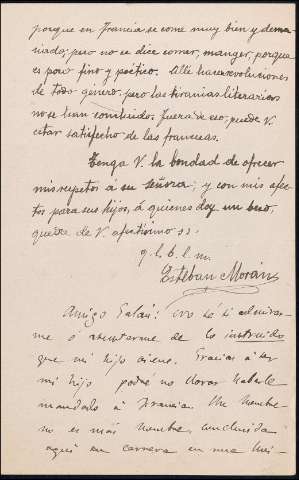 porque en Francia se come muy bien y dema-
siado; pero no se dice comer, manger, porque
es poco fino y poético. Allí hacen revoluciones
de todo género, pero las tiranías literarias
no se tocan. fuera de eso, puede V.
estar satisfecho de las francesas.
Tenga V. la bondad de ofrecer
mis respetos á su señora; y con mis afec-
tos para sus hijos, á quienes doy un beso,
queda de V. afectísimo s.s.
q. l. b. l. m.
Esteban Morán
Amigo Galán: no sé si admirar-
me ó de lo instruido
que mi hijo viene. Gracias á ser
mi hijo podre no llorar haberle
mandado á Francia. Un hombre
no es más hombre, concluida
aquí su carrera en una